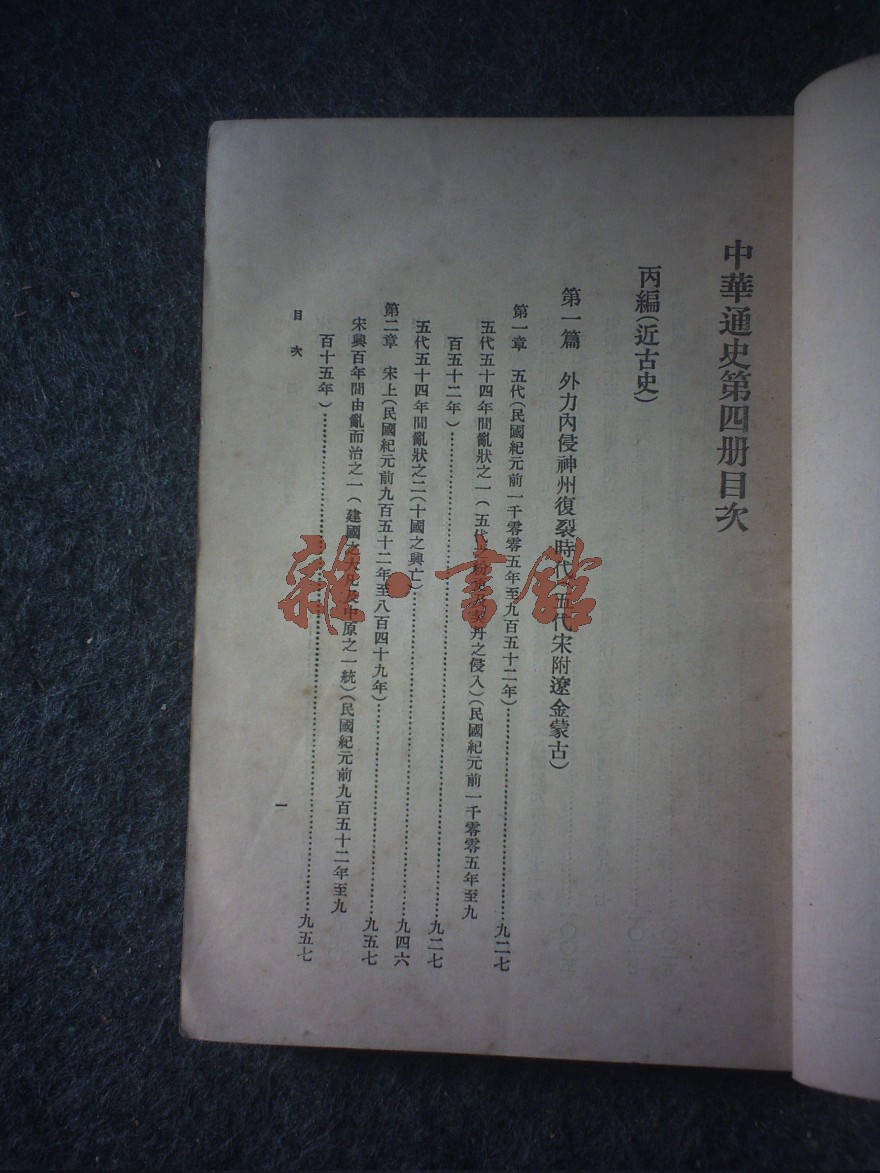 中華通史第四册目次
丙編（近古史）
第一篇　外力內侵神州復裂時代（五代宋附遼金蒙古）
第一章　五代（民國紀元前一千零零五年至九百五十二年）……九二七
五代五十四年間亂狀之一（五代之丹之侵入）（民國紀元前一千零零五年至九
百五十二年）……九二七
五代五十四年間亂狀之二（十國之興亡）……九四六
第二章　宋上（民國紀元前九百五十二年至八百四十九年）……九五七
宋興百年間由亂而治之一（建國之中原之一統）（民國紀元前九百五十二年至九
百十五年）……九五七
目次
一
雜·書館